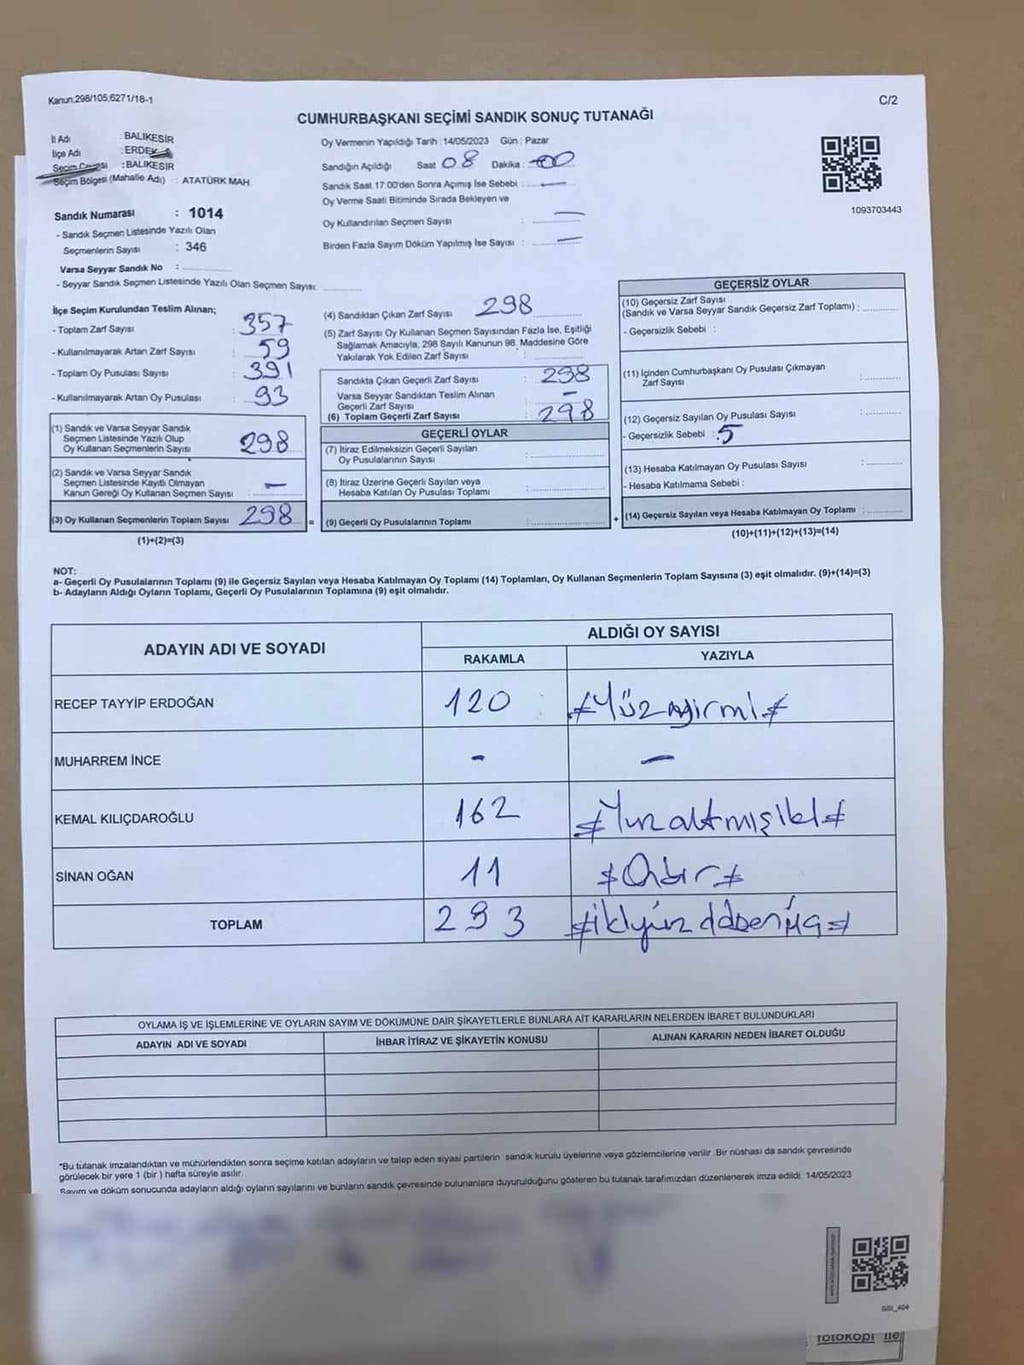 Kanun;298/105;6271/18-1
C/2
CUMHURBAŞKANI SEÇİMİ SANDIK SONUÇ TUTANAĞI
İl Adı : BALIKESİR
İlçe Adı : ERDEK
Seçim Çevresi : BALIKESİR
Seçim Bölgesi (Mahalle Adı) : ATATÜRK MAH
Sandık Numarası : 1014
- Sandık Seçmen Listesinde Yazılı Olan
Seçmenlerin Sayısı : 346
Varsa Seyyar Sandık No :
- Seyyar Sandık Seçmen Listesinde Yazılı Olan Seçmen Sayısı:
Oy Vermenin Yapıldığı Tarih : 14/05/2023 Gün : Pazar
Sandığın Açıldığı Saat 08 Dakika : 00
Sandık Saat 17:00'den Sonra Açımış İse Sebebi : —
Oy Verme Saati Bitiminde Sırada Bekleyen ve
Oy Kullandırılan Seçmen Sayısı : —
Birden Fazla Sayım Döküm Yapılmış İse Sayısı : —
1093703443
İlçe Seçim Kurulundan Teslim Alınan;
- Toplam Zarf Sayısı : 357
- Kullanılmayarak Artan Zarf Sayısı : 59
- Toplam Oy Pusulası Sayısı : 391
- Kullanılmayarak Artan Oy Pusulası : 93
(1) Sandık ve Varsa Seyyar Sandık
Seçmen Listesinde Yazılı Olup
Oy Kullanan Seçmenlerin Sayısı : 298
(2) Sandık ve Varsa Seyyar Sandık
Seçmen Listesinde Kayıtlı Olmayan
Kanun Gereği Oy Kullanan Seçmen Sayısı : —
(3) Oy Kullanan Seçmenlerin Toplam Sayısı 298
(1)+(2)=(3)
(4) Sandıktan Çıkan Zarf Sayısı : 298
(5) Zarf Sayısı Oy Kullanan Seçmen Sayısından Fazla İse, Eşitliği
Sağlamak Amacıyla; 298 Sayılı Kanunun 98. Maddesine Göre
Yakılarak Yok Edilen Zarf Sayısı :
Sandıkta Çıkan Geçerli Zarf Sayısı : 298
Varsa Seyyar Sandıktan Teslim Alınan
Geçerli Zarf Sayısı : —
(6) Toplam Geçerli Zarf Sayısı : 298
GEÇERLİ OYLAR
(7) İtiraz Edilmeksizin Geçerli Sayılan
Oy Pusulalarının Sayısı :
(8) İtiraz Üzerine Geçerli Sayılan veya
Hesaba Katılan Oy Pusulası Toplamı :
= (9) Geçerli Oy Pusulalarının Toplamı :
GEÇERSİZ OYLAR
(10) Geçersiz Zarf Sayısı
(Sandık ve Varsa Seyyar Sandık Geçersiz Zarf Toplamı) :
- Geçersizlik Sebebi :
(11) İçinden Cumhurbaşkanı Oy Pusulası Çıkmayan
Zarf Sayısı :
(12) Geçersiz Sayılan Oy Pusulası Sayısı :
- Geçersizlik Sebebi : 5
(13) Hesaba Katılmayan Oy Pusulası Sayısı :
- Hesaba Katılmama Sebebi :
+ (14) Geçersiz Sayılan veya Hesaba Katılmayan Oy Toplamı :
(10)+(11)+(12)+(13)=(14)
NOT:
a- Geçerli Oy Pusulalarının Toplamı (9) ile Geçersiz Sayılan veya Hesaba Katılmayan Oy Toplamı (14) Toplamları, Oy Kullanan Seçmenlerin Toplam Sayısına (3) eşit olmalıdır. (9)+(14)=(3)
b- Adayların Aldığı Oyların Toplamı, Geçerli Oy Pusulalarının Toplamına (9) eşit olmalıdır.
ADAYIN ADI VE SOYADI
ALDIĞI OY SAYISI
RAKAMLA YAZIYLA
RECEP TAYYİP ERDOĞAN 120 #Yüzyirmi#
MUHARREM İNCE - —
KEMAL KILIÇDAROĞLU 162 #Yüzaltmışiki#
SİNAN OĞAN 11 #Onbir#
TOPLAM 293
OYLAMA İŞ VE İŞLEMLERİNE VE OYLARIN SAYIM VE DÖKÜMÜNE DAİR ŞİKAYETLERLE BUNLARA AİT KARARLARIN NELERDEN İBARET BULUNDUKLARI
ADAYIN ADI VE SOYADI
İHBAR İTİRAZ VE ŞİKAYETİN KONUSU
ALINAN KARARIN NEDEN İBARET OLDUĞU
*Bu tutanak imzalandıktan ve mühürlendikten sonra seçime katılan adayların ve talep eden siyasi partilerin sandık kurulu üyelerine veya gözlemcilerine verilir. Bir nüshası da sandık çevresinde
görülecek bir yere 1 (bir ) hafta süreyle asılır.
Sayım ve döküm sonucunda adayların aldığı oyların sayılarını ve bunların sandık çevresinde bulunanlara duyurulduğunu gösteren bu tutanak tarafımızdan düzenlenerek imza edildi. 14/05/2023
fotokopi ile